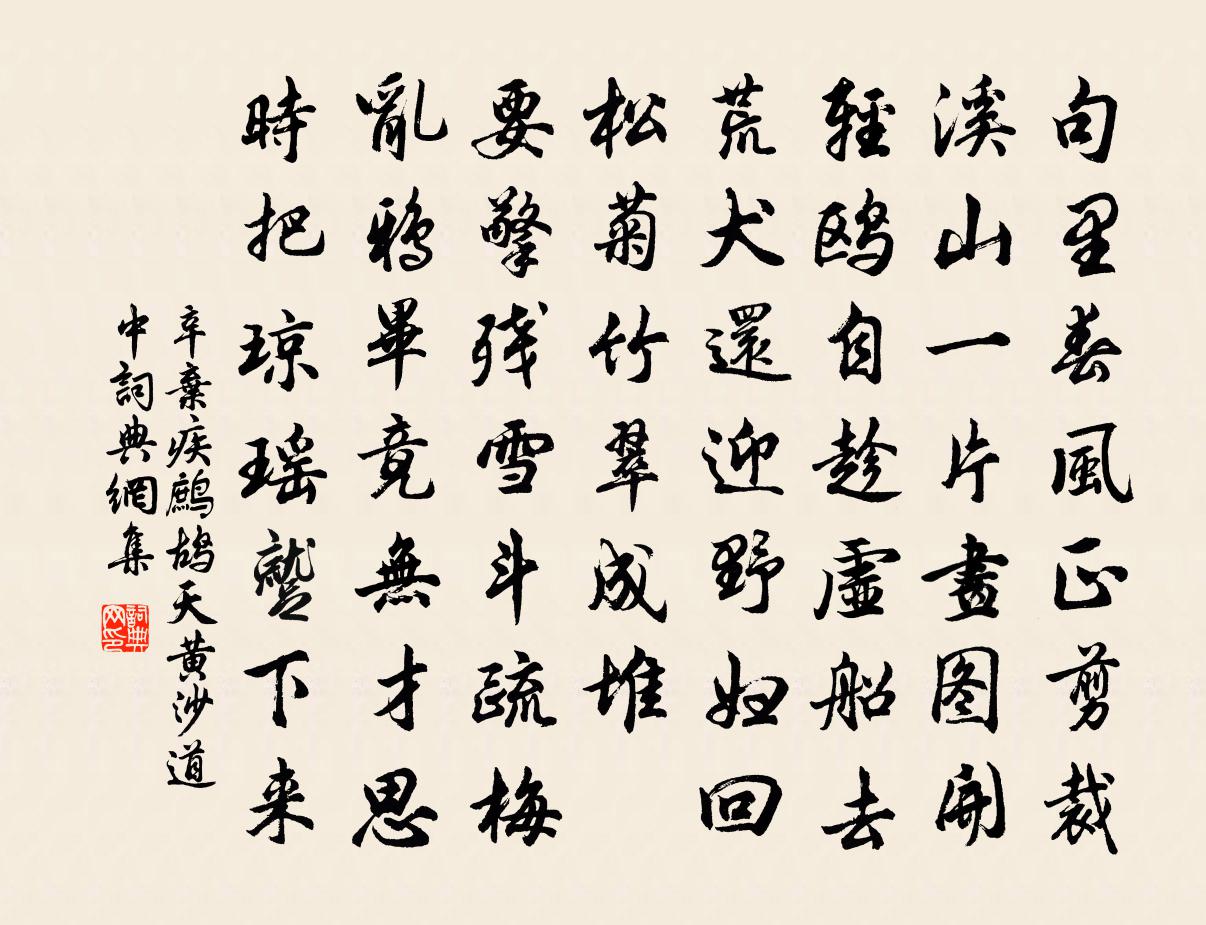 句里春風正剪裁
溪山一片畫图開
輕鷗自趁虛船去
荒犬還迎野妇回
松菊竹翠成堆
要擎残雪斗疏梅
亂鴉畢竟無才思
時把琼瑤蹵下来
辛棄疾鷓鴣天黃沙道
中詞典網集
詞典
网印